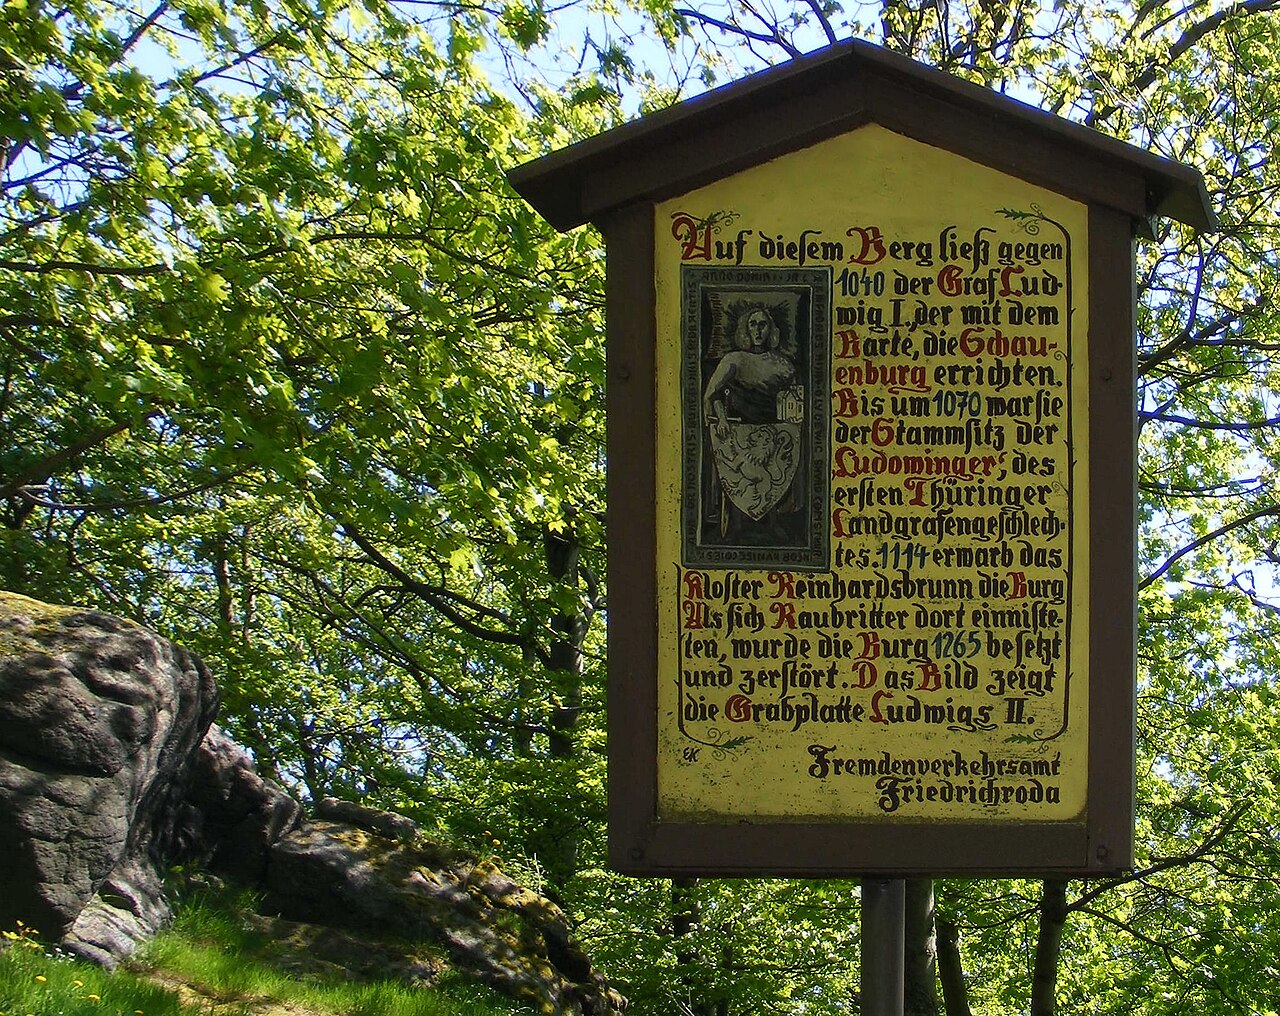 Auf diesem Berg ließ gegen
1040 der Graf Lud-
wig I., der mit dem
Barte, die Schau-
enburg errichten.
Bis um 1070 war sie
der Stammsitz der
Ludowinger, des
ersten Thüringer
Landgrafengeschlech-
tes. 1114 erwarb das
Kloster Reinhardsbrunn die Burg
Als sich Raubritter dort einniste-
ten, wurde die Burg 1265 besetzt
und zerstört. Das Bild zeigt
die Grabplatte Ludwigs II.
EK
Fremdenverkehrsamt
Friedrichroda